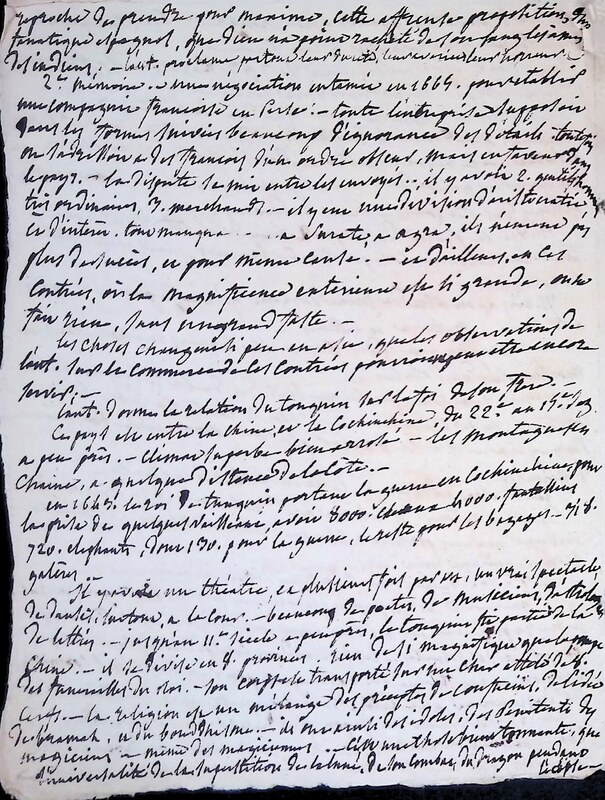 reproche de prendre pour maxime, cette affreuse proposition d'un
fanatique espagnol, que dieu n'a point racheté de son sang les ames
des indiens, - l'aut. proclame partout leur leur leur horreur
2e mémoire. - une négociation entamée en 1664. pour établir
une compagnie françoise en Perse. - toute l'entreprise supposoit
dans les formes suivies beaucoup d'ignorance des détails. toutefois
on s'adressa a des françois d'un ordre obscur, mais en faveur dans
le pays. - la dispute se mit entre les envoyés... il y avoit 2. gentilshommes
très ordinaires, 3. marchands. - il y eut une division d'aristocratie
et d'intérêt. tout manqua ... a Surate, a agra, ils n'eurent pas
plus de succès, et pour même cause. - et d'ailleurs, en ces
contrées, où la magnificence extérieure est si grande, on ne
fait rien, sans un grand faste. -
les choses changent si peu en asie, que les observations de
l'aut. sur le commerce de ces contrées pourroient peut etre encore
servir. -
l'aut. donne la relation du tonquin sur la foi de son frere. -
Ce pays est entre la chine, et la Cochinchine, du 22e au 15e deg.
a peu près. - climat superbe bien arrosé - les montagnes en
chaine, a quelque distance de la côte. -
en 1645. le roi de tunquin portant la guerre en Cochinchine, pour
la prise de quelques vaisseaux, avoit 8000. chevaux 4000. fantassins
720. elephants, dont 130. pour la guerre, le reste pour les bagages - 318.
galères. -
Il y avoit un théatre, et plusieurs fois par an, un vrai spectacle
de danses, surtout, a la cour. - beaucoup de poetes, de musiciens,
de lettrés. - jusqu'au 11e siècle a peu près, le tonquin fit partie de la
chine. - il se divise en 8. provinces. rien de si magnifique que la pompe
des funerailles du roi. - son corps est transporté sur un char attelé de 8.
cerfs. - la religion est un mélange des préceptes de confucius, de l'idée
de bramah, et du bouddhisme. - ils ont aussi des idoles, des pénitents des
magiciens - même des magiciennes - C'est une chose bien étonnante, que
l'universalité de la superstition de la lune, de son combat, du dragon pendant
l'éclipse -